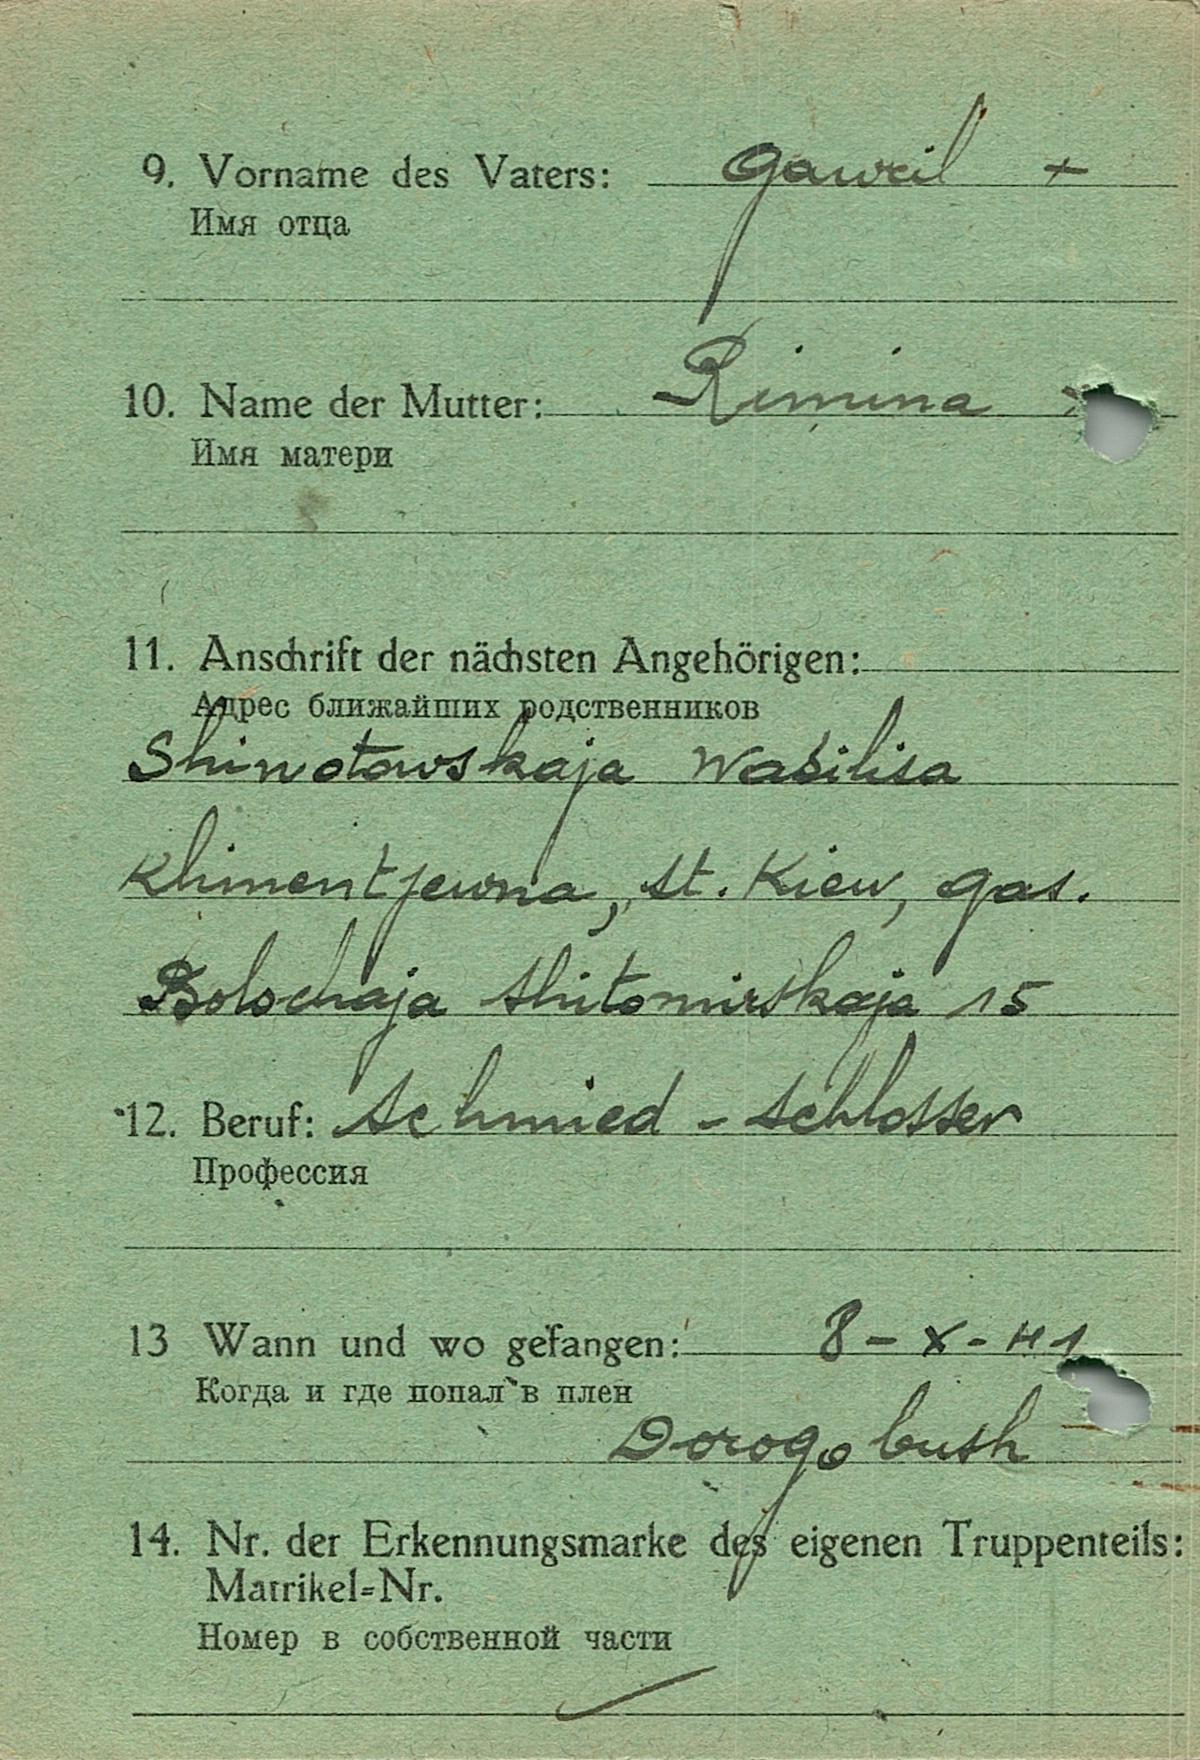 9. Vorname des Vaters: Gawril +
Имя отца
10. Name der Mutter: Rimina
Имя матери
11. Anschrift der nächsten Angehörigen:
Адрес ближайших родственников
Shiwotowskaja Wasilisa
Klimentjewna, st. Kiew, gas.
Bolschaja Shitomirskaja 15
12. Beruf: Schmied - Schlosser
Профессия
13 Wann und wo gefangen: 8 - X - 41
Когда и где попал в плен
Dorogobush
14. Nr. der Erkennungsmarke des eigenen Truppenteils:
Matrikel=Nr.
Номер в собственной части